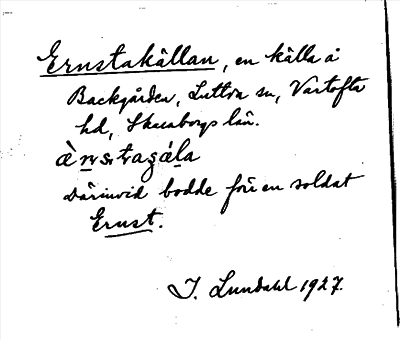 Ernstakällan, en källa å
Backgården, Luttra sn, Vartofta
hd, Skaraborgs län.
ä̀nstagála
Därinvid bodde förr en soldat
Ernst.
I. Lundahl 1927.